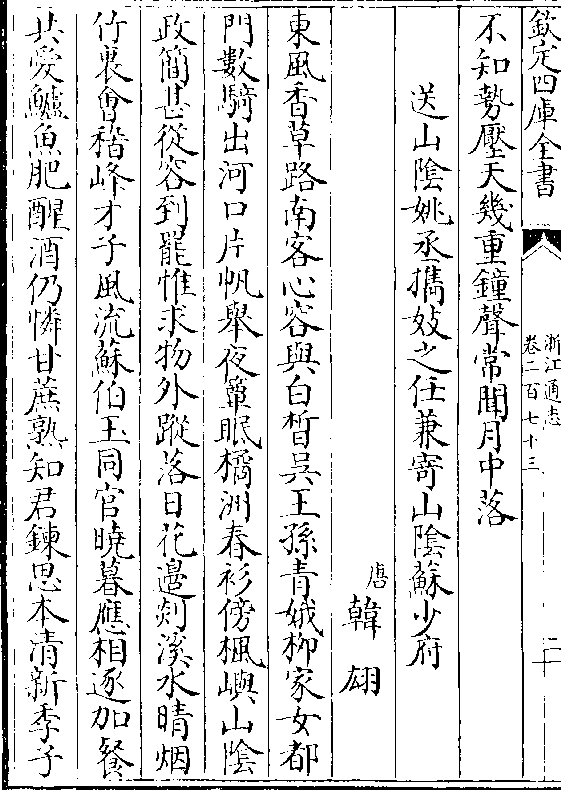 欽定四庫全書
浙江通志
卷二百七十三
二十
不知勢壓天幾重鐘聲常聞月中落
送山陰姚丞攜妓之任兼寄山陰蘇少府
唐
韓翃
東風香草路南客心容與白晳吳王孫青娥柳家女都
門數騎出河口片帆舉夜簟眠橘洲春衫傍楓嶼山陰
政簡甚從容到罷惟求物外蹤落日花邊剡溪水晴烟
竹裏㑹稽峰才子風流蘇伯玉同官曉暮應相逐加餐
共愛鱸魚肥醒酒仍憐甘蔗孰知君鍊思本清新季子